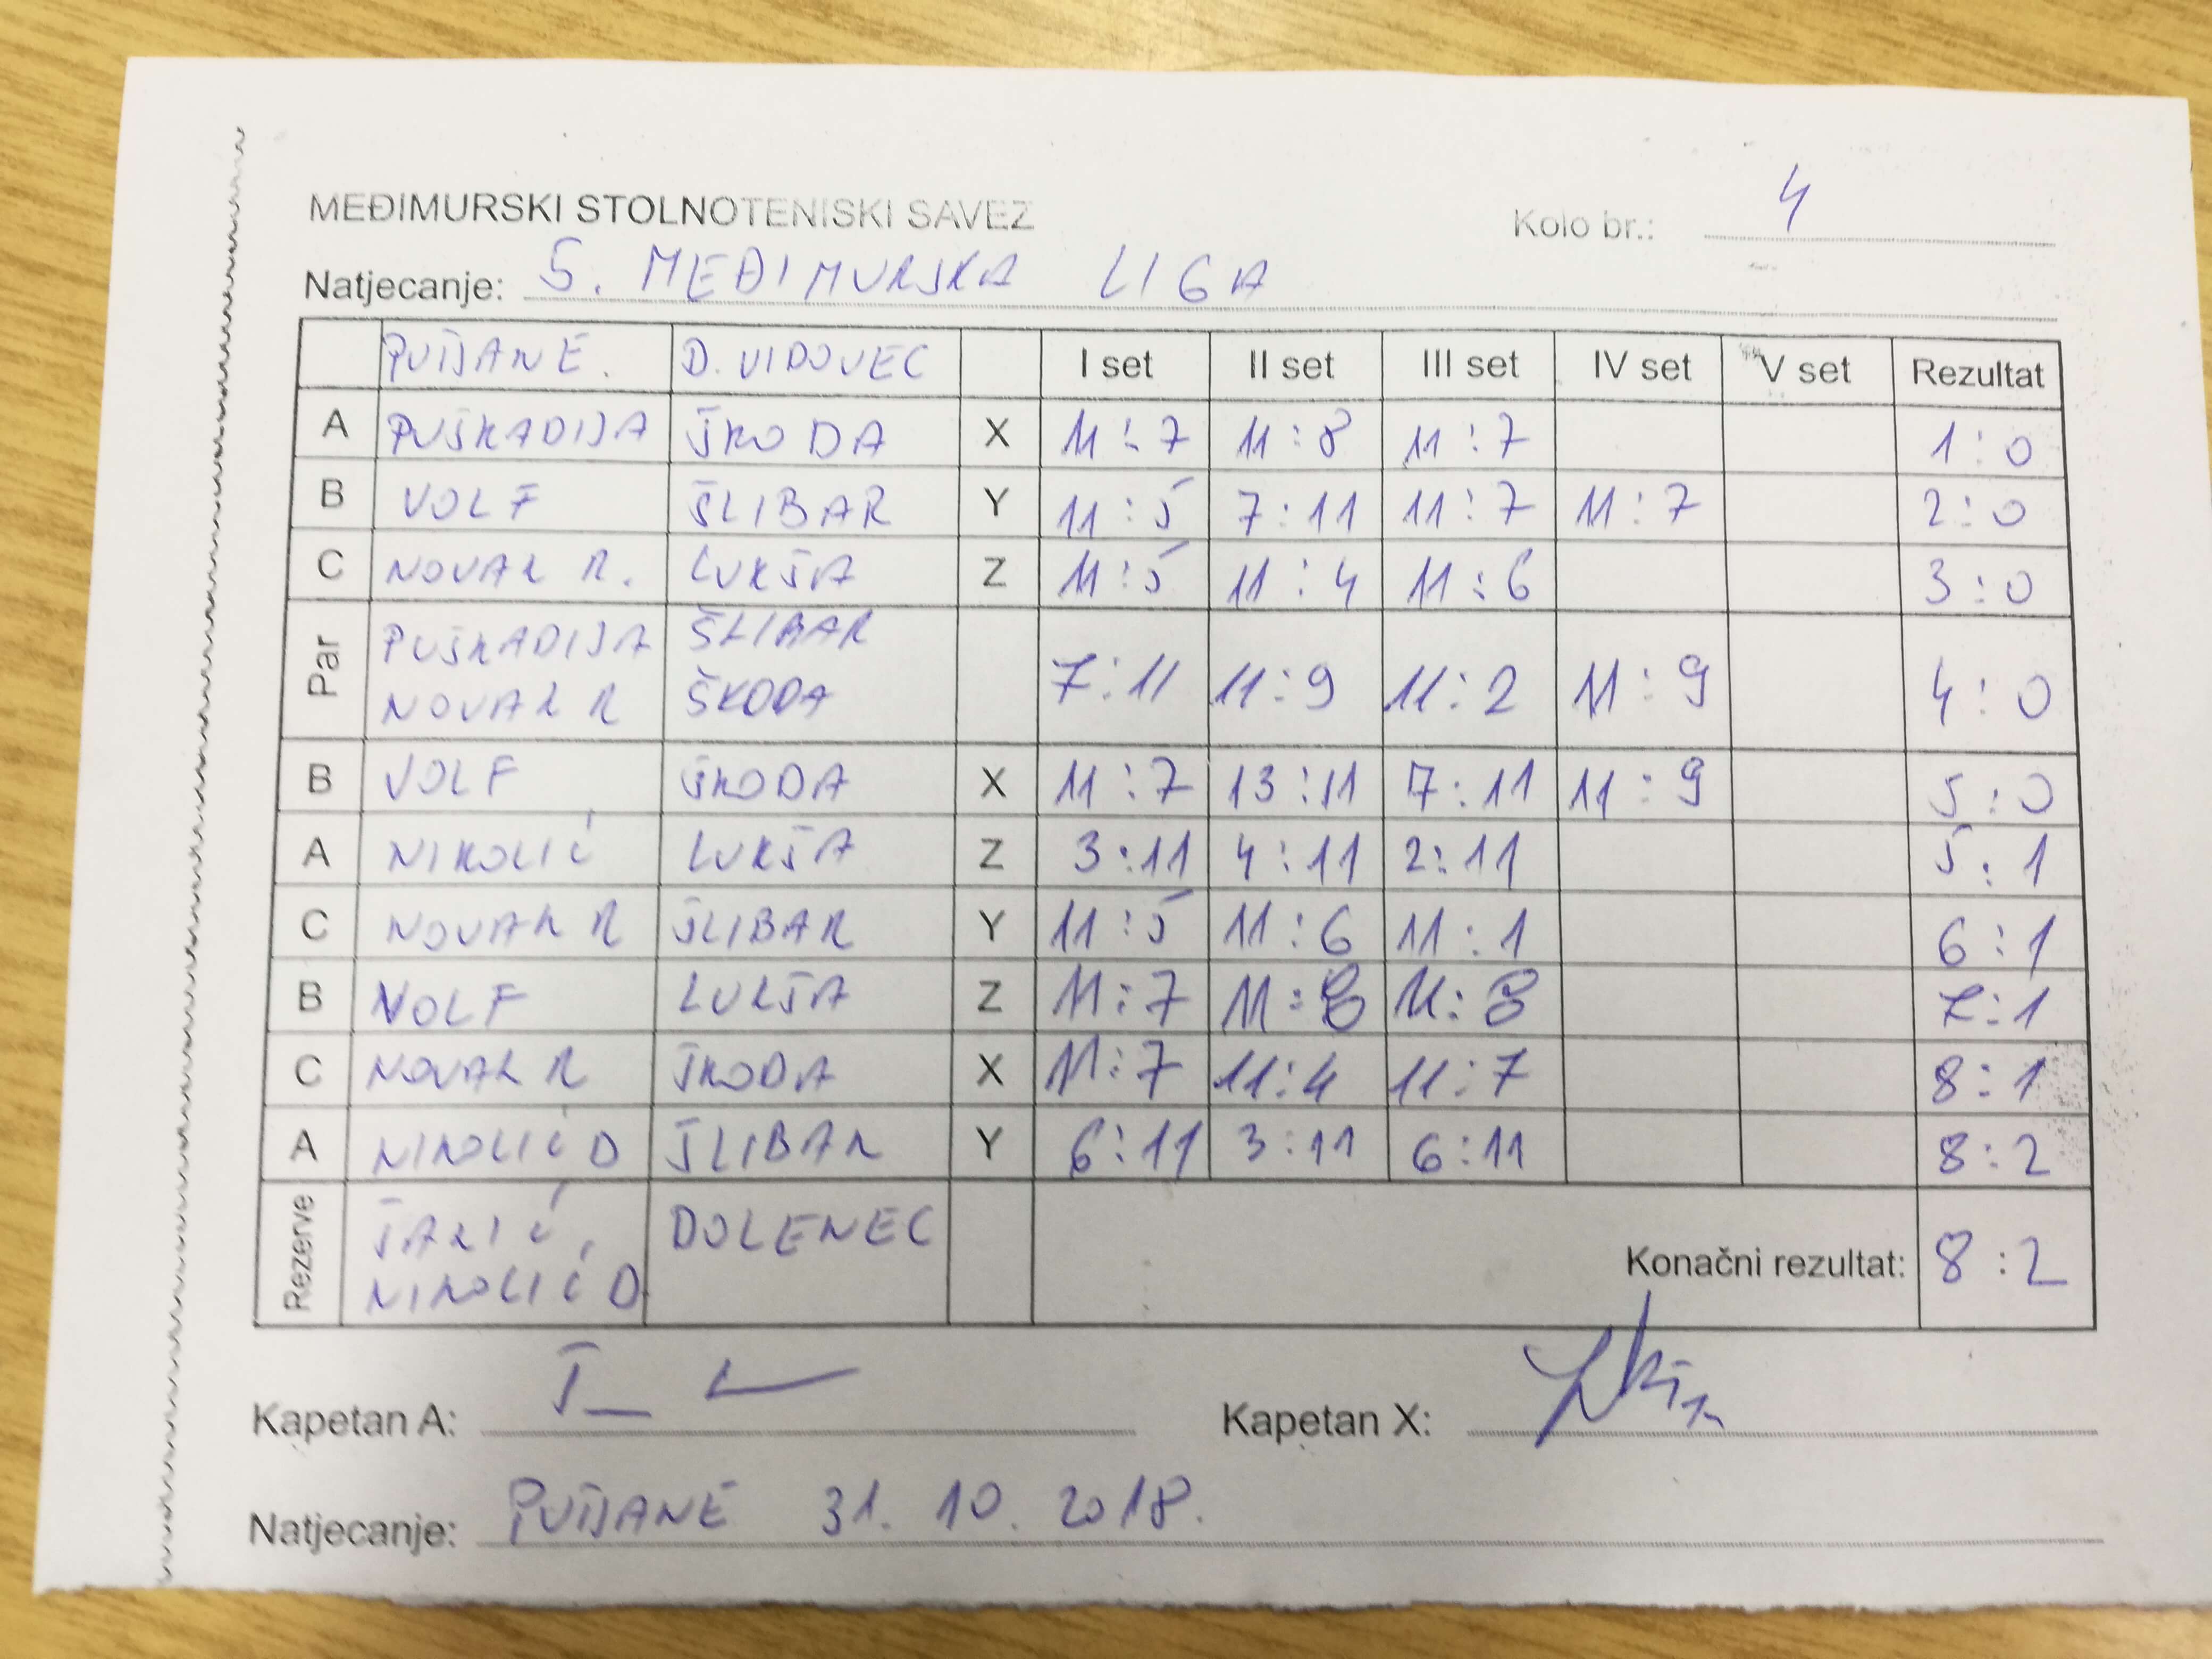 MEĐIMURSKI STOLNOTENISKI SAVEZ Kolo br.: 4
Natjecanje: 5. MEĐIMURSKA LIGA
PUŠĆANE. D. VIDOVEC I set II set III set IV set V set Rezultat
A PUŠKADIJA ŠKODA X 11:7 11:8 11:7 1:0
B VOLF ŠLIBAR Y 11:5 7:11 11:7 11:7 2:0
C NOVAK R. LUKŠA Z 11:5 11:4 11:6 3:0
Par PUŠKADIJA ŠLIBAR
NOVAK R ŠKODA 7:11 11:9 11:2 11:9 4:0
B VOLF ŠKODA X 11:7 13:11 7:11 11:9 5:0
A NIKOLIĆ LUKŠA Z 3:11 4:11 2:11 5:1
C NOVAK R ŠLIBAR Y 11:5 11:6 11:1 6:1
B VOLF LUKŠA Z 11:7 11:8 11:8 7:1
C NOVAK R ŠKODA X 11:7 11:4 11:7 8:1
A NIKOLIĆ D ŠLIBAR Y 6:11 3:11 6:11 8:2
Rezerve ŠARIĆ, DOLENEC
NIKOLIĆ D
Konačni rezultat: 8:2
Kapetan A: Kapetan X:
Natjecanje: 31. 10. 2018.